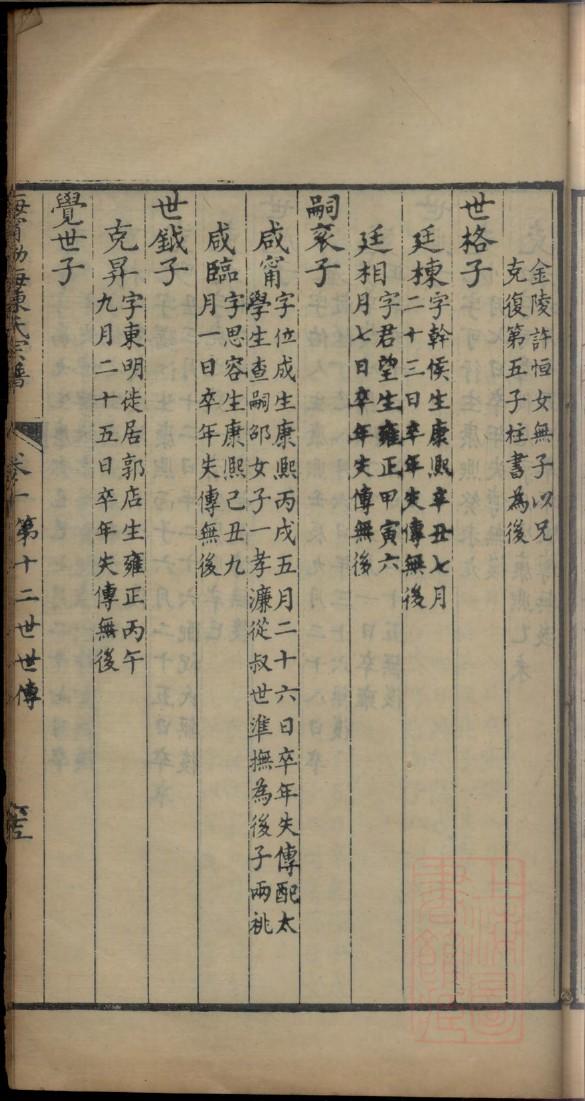 金陵許恒女無子以兄
克復第五子柱書為後
世格子
廷棟
字幹侯生康熙辛丑七月
二十三日卒年失傳無後
廷相
字君望生雍正甲寅六
月七日卒年失傳無後
嗣袞子
咸甯
字位成生康熙丙戌五月二十六日卒年失傳配太
學生查嗣邵女子一孝濂從叔世準撫為後子兩祧
咸臨
字思容生康熙己丑九
月一日卒年失傳無後
世鉞子
克昇
字東明徒居郭店生雍正丙午
九月二十五日卒年失傳無後
覺世子
海甯渤海陳氏宗譜
卷十一 第十二世世傳